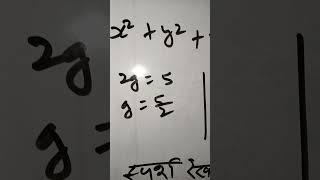 x² + y² +
2g
2g = 5
g = 5/2
g =
स्पर्श रेखा